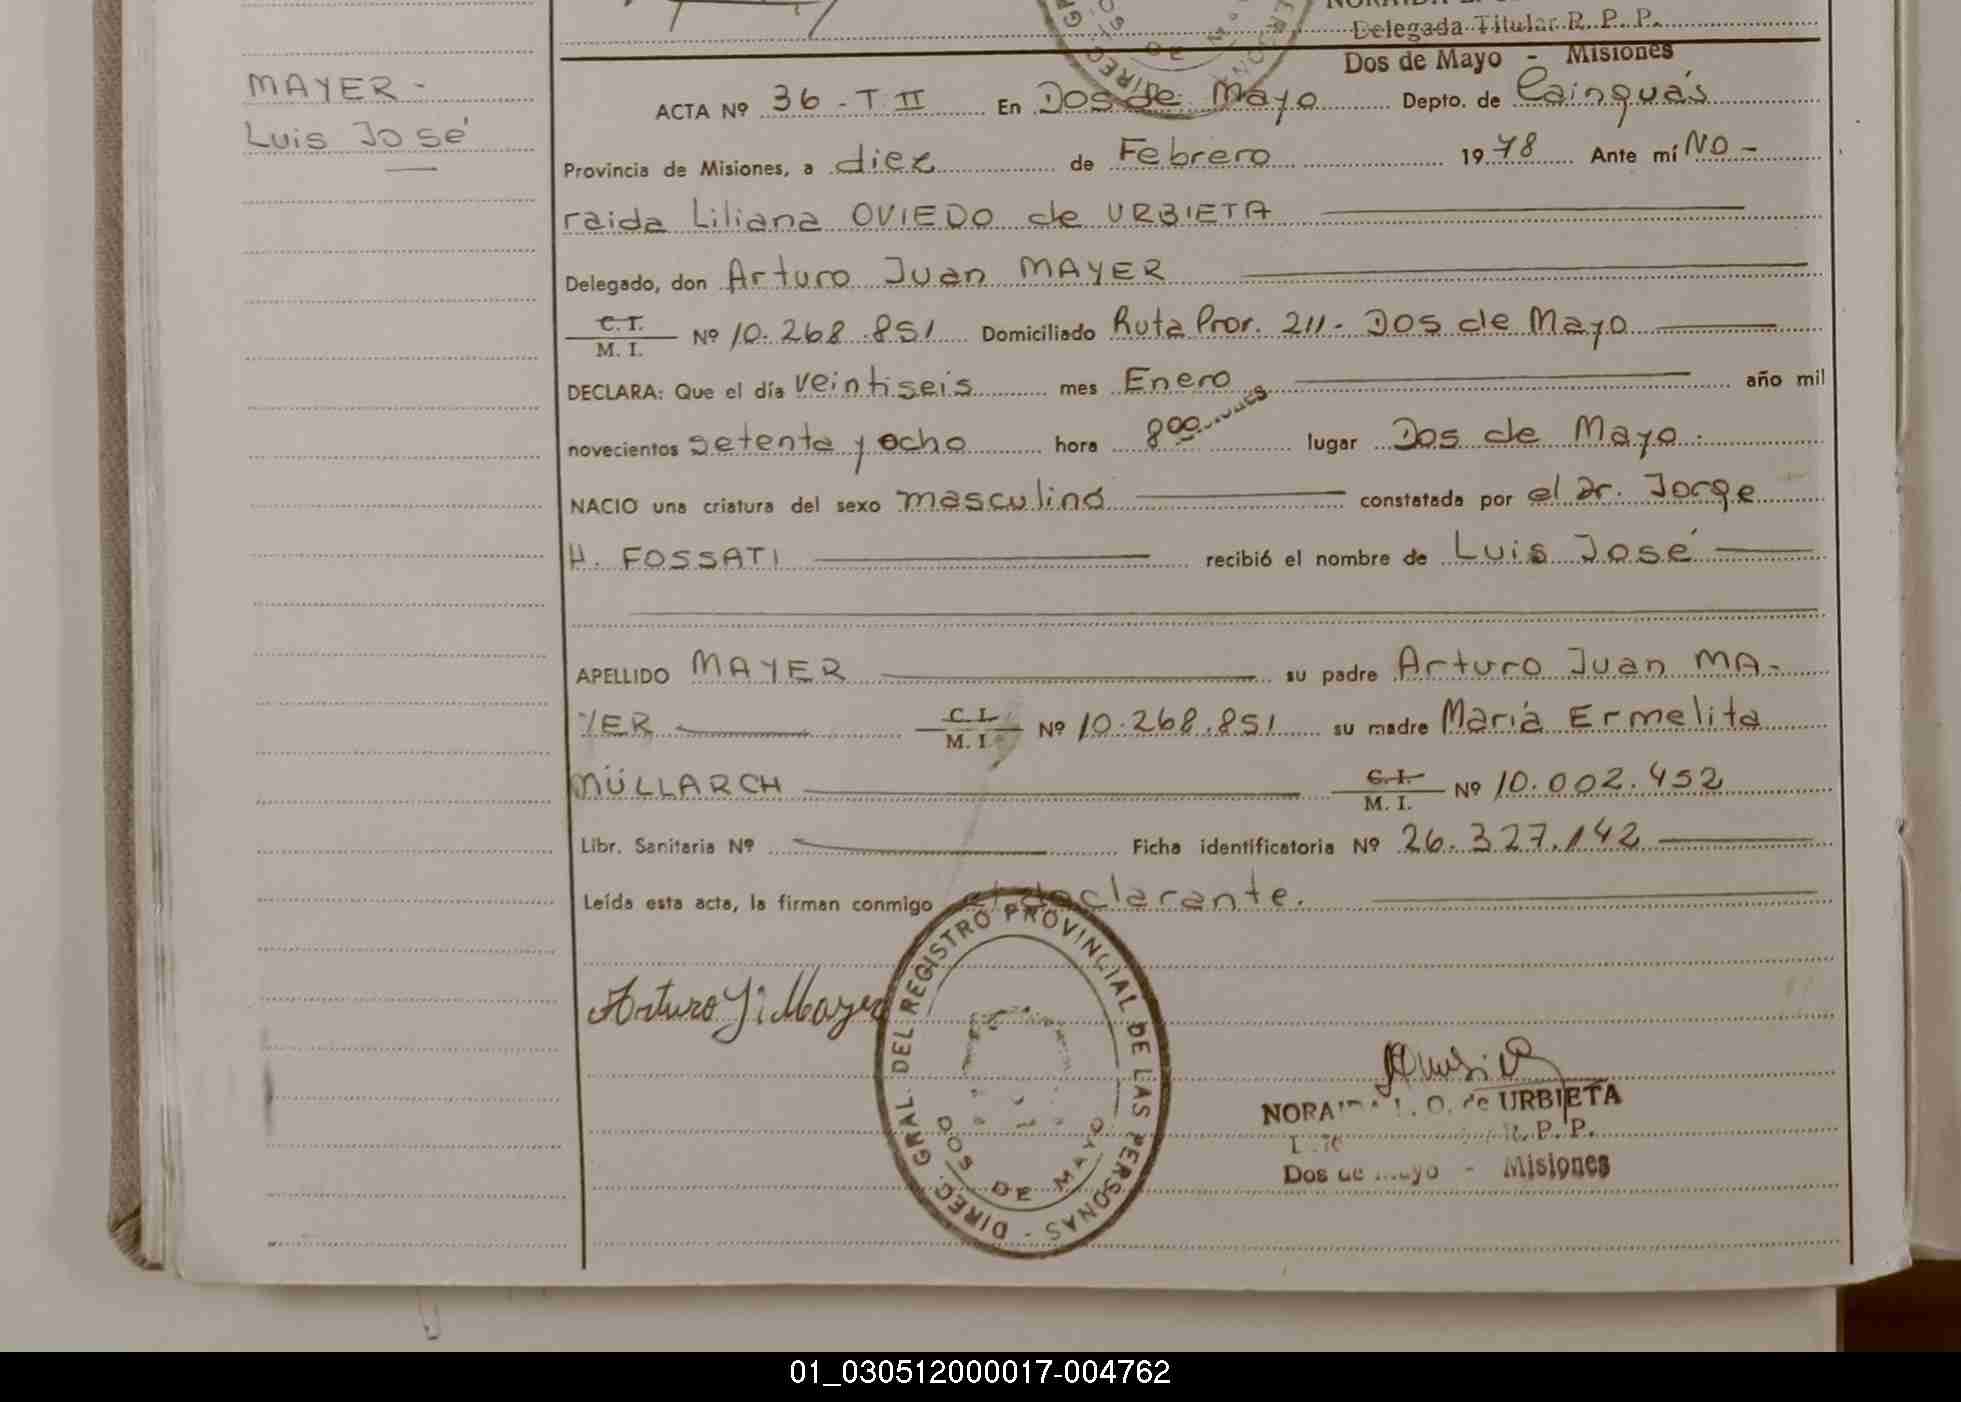 Delegada Titular R. P. P.
Dos de Mayo - Misiones
MAYER -
Luis José
ACTA Nº 36 - T II En Dos de Mayo Depto. de Cainguás
Provincia de Misiones, a diez de Febrero 1978 Ante mí NO-
raida Liliana OVIEDO de URBIETA
Delegado, don Arturo Juan MAYER
C. I.
M. I. Nº 10.268.851 Domiciliado Ruta Prov. 211 - Dos de Mayo
DECLARA: Que el día veintiseis mes Enero año mil
novecientos setenta y ocho hora 8 00 lugar Dos de Mayo.
NACIO una criatura del sexo masculino constatada por el Dr. Jorge
H. FOSSATI recibió el nombre de Luis José
APELLIDO MAYER su padre Arturo Juan MA-
YER C. I.
M. I. Nº 10.268.851 su madre María Ermelita
MÜLLARCH C. I.
M. I. Nº 10.002.452
Libr. Sanitaria Nº Ficha identificatoria Nº 26.327.142
Leída esta acta, la firman conmigo el declarante.
Arturo J. Mayer
DIREC. GRAL. DEL REGISTRO PROVINCIAL DE LAS PERSONAS -
DOS DE MAYO
NORAIDA L. O. de URBIETA
R. P. P.
Dos de Mayo - Misiones
01_030512000017-004762